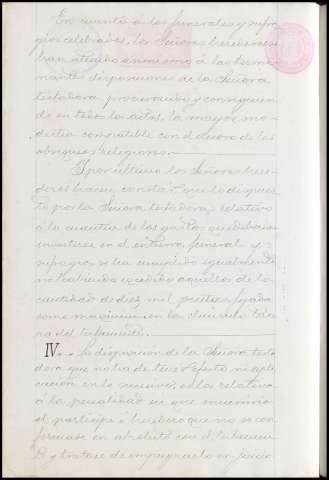 En cuanto a los funerales y sufra-
gios celebrados, los Señores herederos se
han atenido asimismo á las
disposiciones de la Señora
testadora, procurando y consiguien-
do en todos los actos, la mayor mo-
destia compatible con el decoro de las
religiosos.
Y por último los Señores here-
deros hacen constar que lo dispues-
to por la Señora testadora, relativo
á la cuantía de los gastos que debieran
invertirse en el entierro, funeral y
sufragios, se ha cumplido igualmente
no habiendo excedido aquellos de la
cantidad de diez mil pesetas fijada
como maximum en la cláusula
del testamento.
IV. - La disposición de la Señora testa-
dora que no ha de tener efecto ni apli-
cación en lo sucesivo, es la relativa
á la penalidad en que incurriría
el partícipe ó heredero que no se con-
formase en absoluto con el testamen-
to y tratase de impugnarlo en juicio